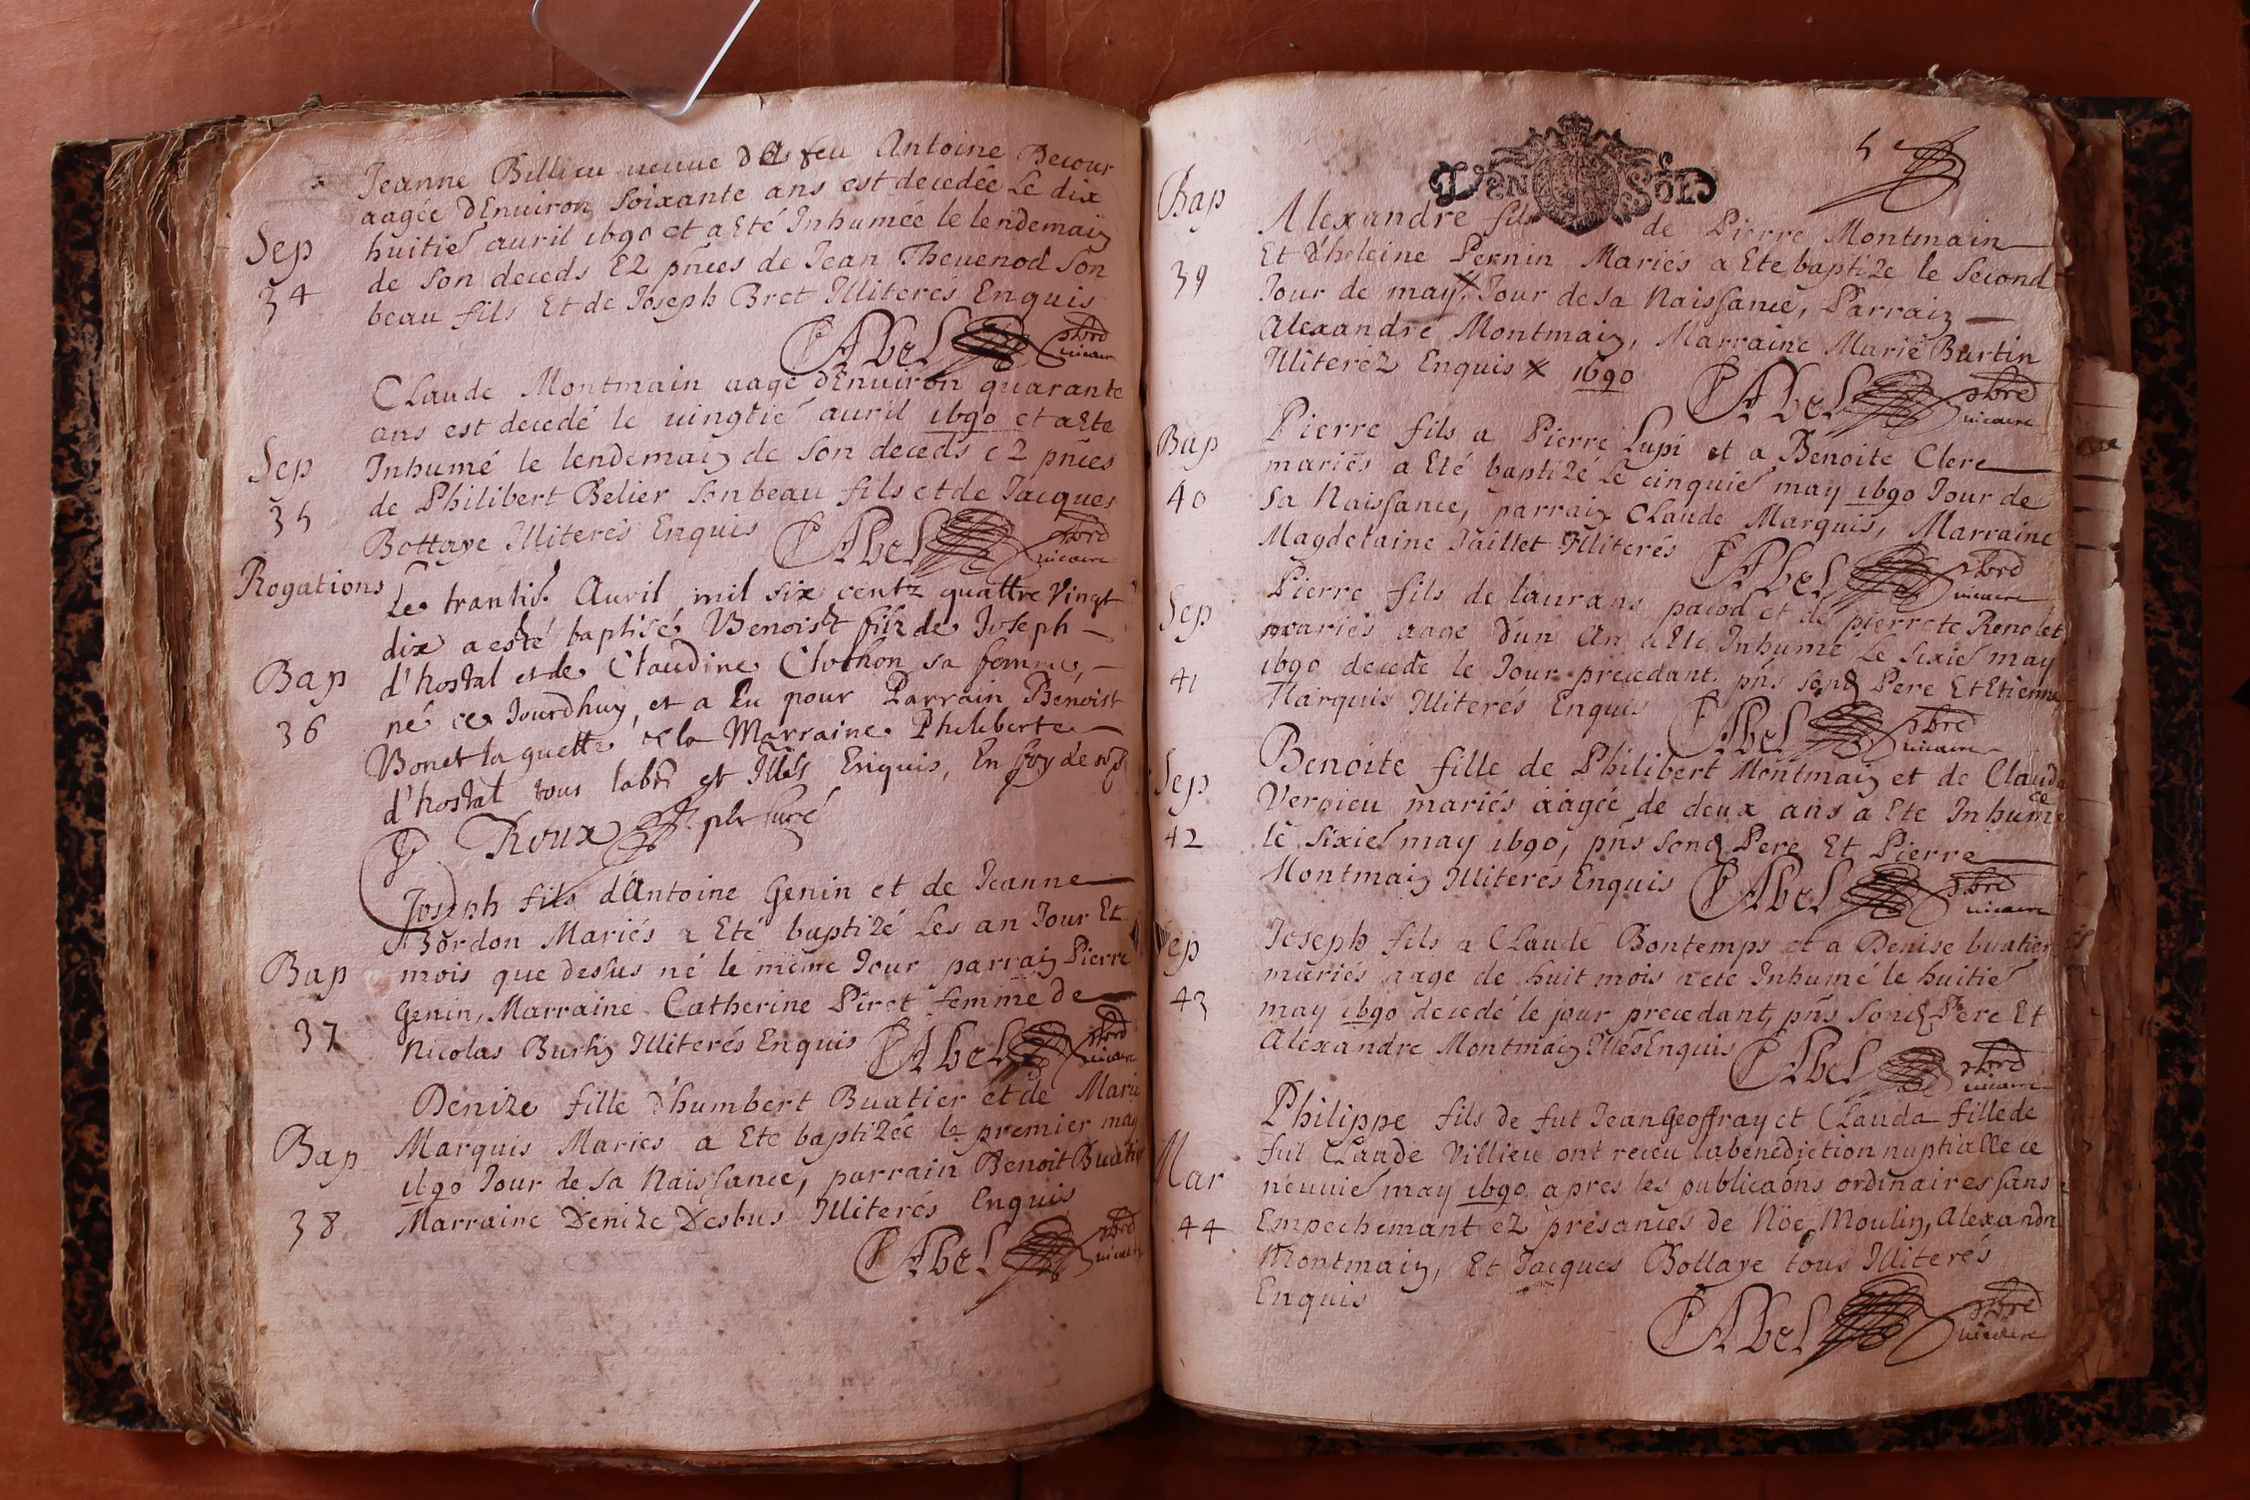 Jeanne Billieu veuve de feu Antoine Decour
aagée dEnuiron Soixante ans est decedée Le dix
huitie auril 1690 et a Eté Inhumée le lendemain
Sep
de Son deceds E2 pnces de Jean Theuenod Son
34
beau fils Et de Joseph Bret Illiterés Enquis
Abel pbre
vicaire
Claude Montmain aagé dEnuiron quarante
ans est decedé le uingtie auril 1690 et a Ete
Sep
Inhumé le lendemain de Son deceds e2 pnces
35
de Philibert Belier Son beau fils et de Jacques
Bottaye Illiterés Enquis Abel pbre
vicaire
Rogations
Le trantie. Auril mil six centz quattre Vingt
dix a esté baptisé Benoist filz de Joseph
Bap
d'hostal et de Claudine Clothon sa femme,
36
né ce Jourdhuy, et a Eu pour Parrain Benoist
Bonet la guette & la Marraine Philiberte
d'hostal tous labrs et Illés Enquis, En foy de
Roux pbr curé
Joseph fils d'Antoine Genin et de Jeanne
Bordon Mariés a Eté baptizé Les an Jour Et
Bap
mois que dessus né le même Jour parrain Pierre
37
Genin, Marraine Catherine Pirot femme de
Nicolas Burtin Illiterés Enquis Abel pbre
vicaire
Denize fille d'humbert Buatier et de Marie
Bap
Marquis Mariés a Ete baptizée le premier may
1690 Jour de Sa Naissance, parrain Benoit Buatier
38
Marraine Denize Desbus Illiterés Enquis
Abel pbre
vicaire
DEN SOL
Bap
Alexandre fils de Pierre Montmain
39
Et d'heleine Pernin Mariés a Ete baptize le Second
Jour de may Jour de sa Naissance, Parrain
Alexandre Montmain, Marraine Marie Burtin
Illiteréz Enquis x 1690 Abel pbre
vicaire
Bap
Pierre fils a Pierre Lupi et a Benoite Clere
40
mariés a Eté baptizé Le cinquie may 1690 Jour de
Sa Naissance, parrain Claude Marquis, Marraine
Magdelaine Jaillet Illiterés Abel pbre
vicaire
Sep
Pierre fils de laurans pacod et de pierrete Renolet
mariés aage d'un An a Ete Inhume Le Sixie may
41
1690 decede le Jour precedant. pns Sond Pere Et Etienne
Marquis Illiterés Enquis Abel pbre
vicaire
Sep
Benoite fille de Philibert Montmain et de Clauda
Vernieu mariés aagée de deux ans a Ete Inhumée
42
le Sixie may 1690, pns Sond Pere Et Pierre
Montmain Illiterés Enquis Abel pbre
vicaire
Sep
Joseph fils a Claude Bontemps et a Denise buatier
mariés aage de huit mois a eté Inhumé le huitie
43
may 1690 decedé le jour precedant, pns Sond Pere Et
Alexandre Montmain Illés Enquis Abel pbre
vicaire
Philippe fils de fut Jean Geoffray et Clauda fille de
fut Claude Villieu ont receu la benediction nuptialle ce
Mar
neuuie may 1690 apres les publicaons ordinaires sans
44
Empechemant ez présances de Nöe Moulin, Alexandre
Montmain, Et Jacques Bollaye tous Illiterés
Enquis
Abel pbre
vicaire